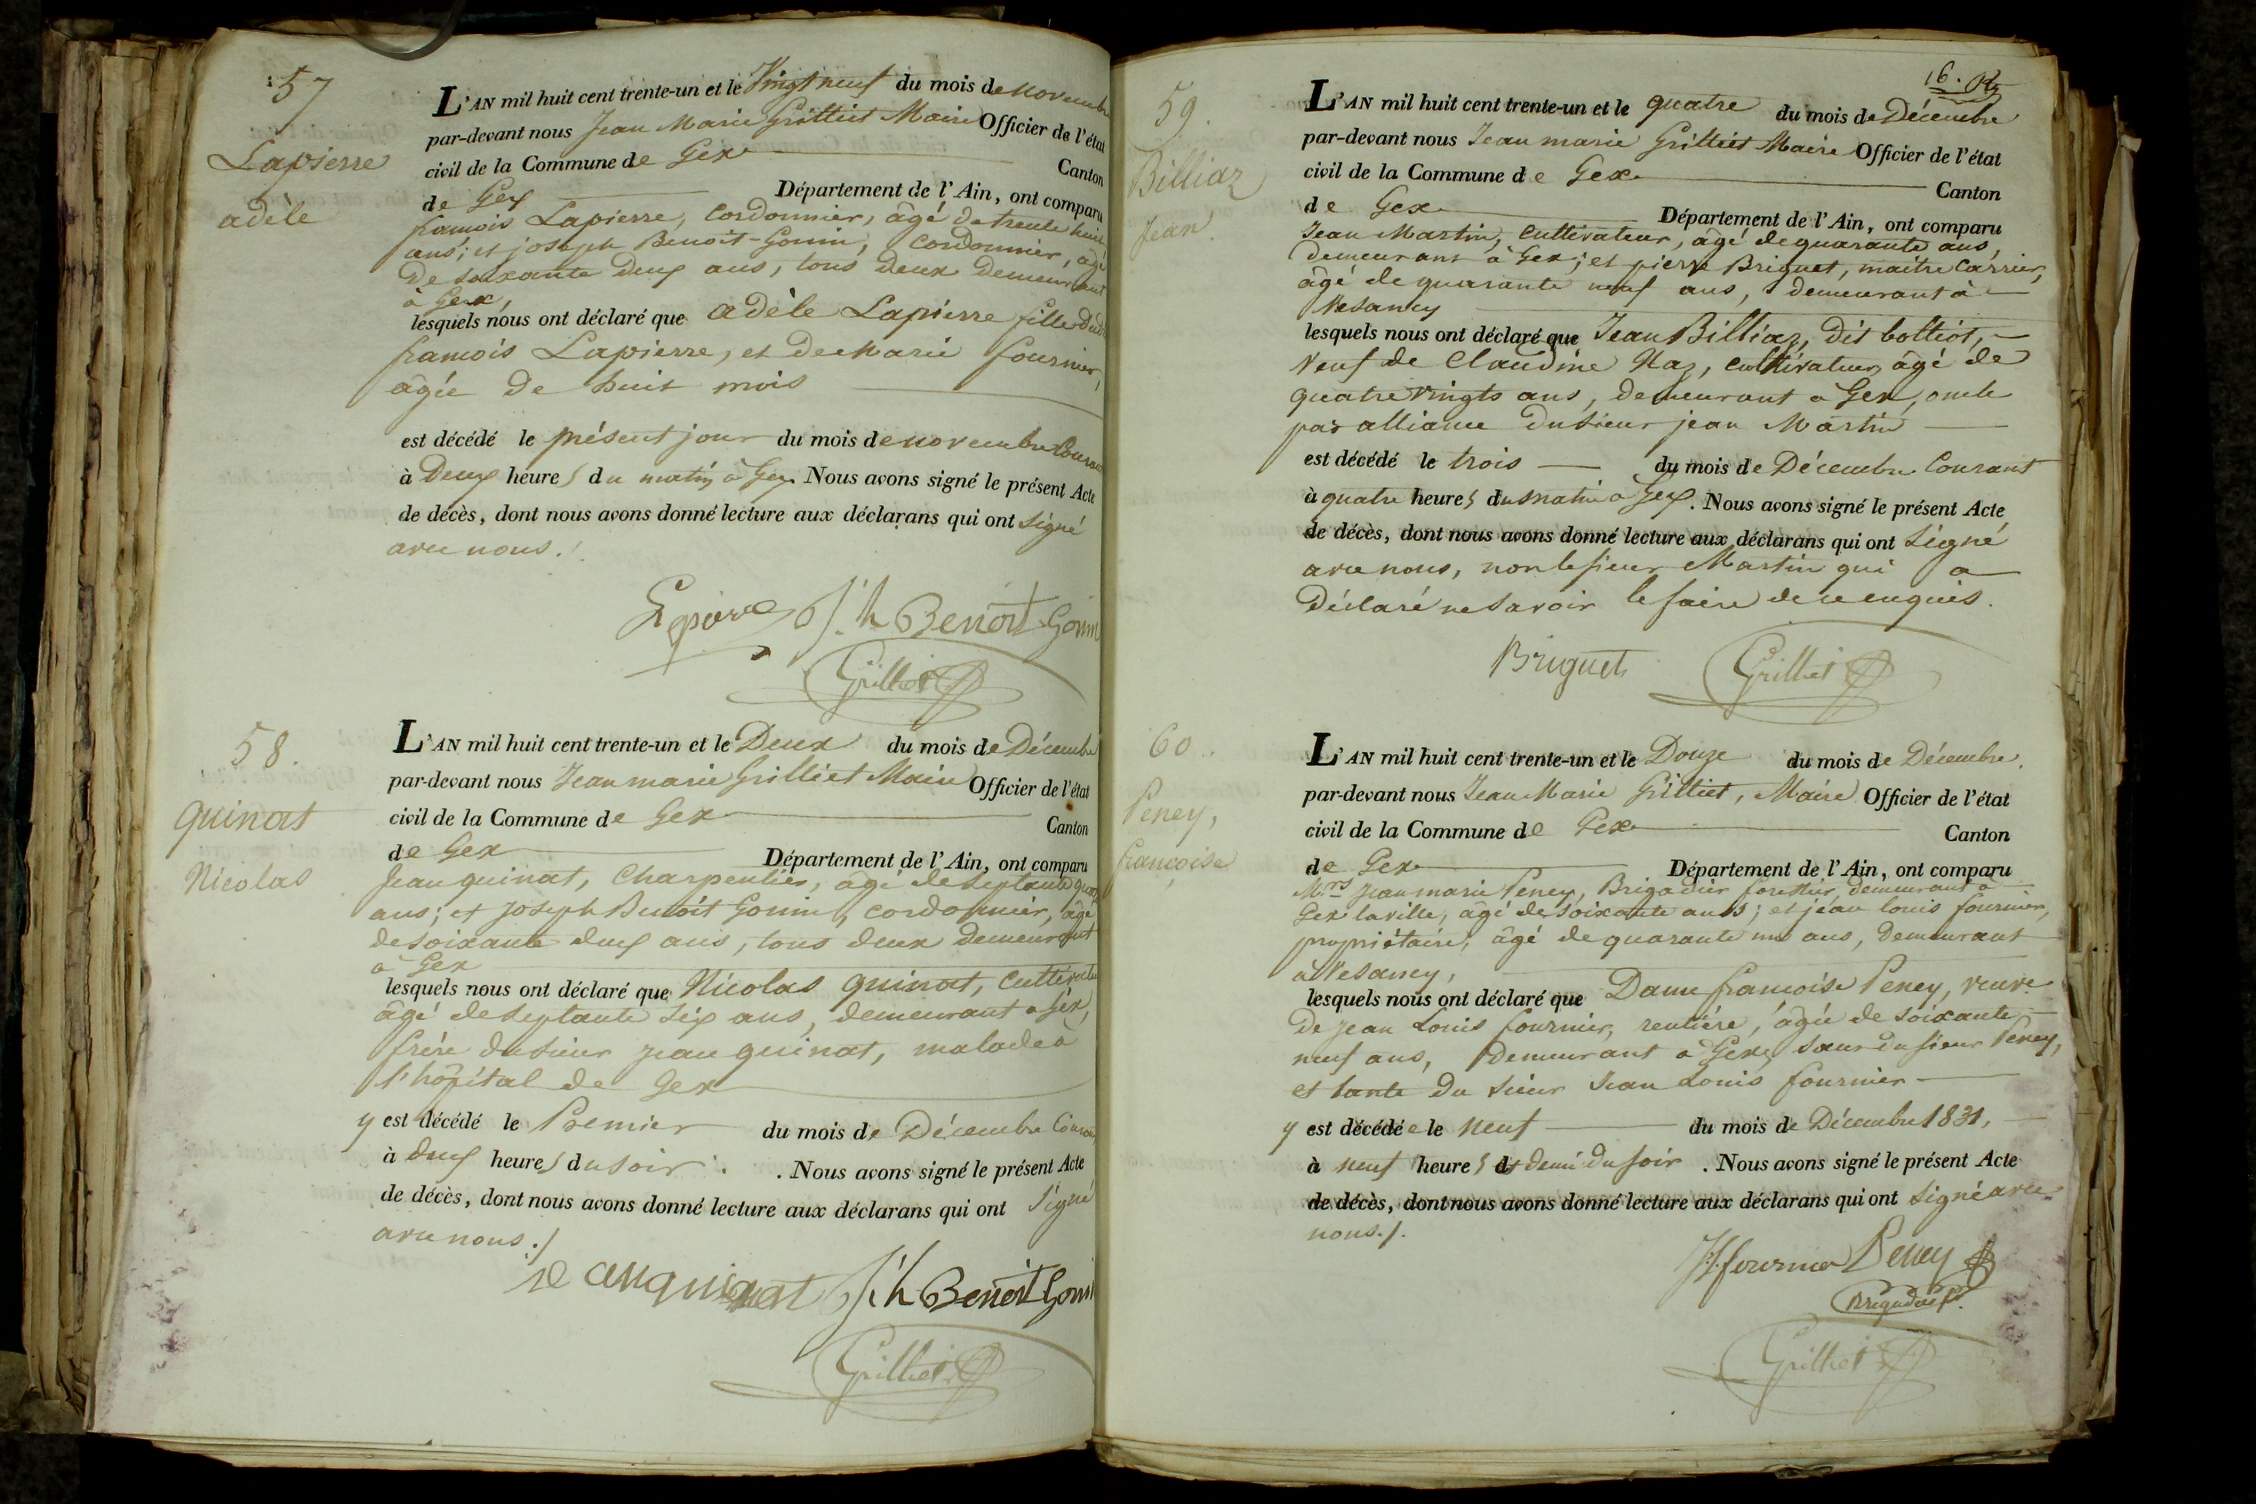 57
Lapierre
adèle
L'AN mil huit cent trente-un et le Vingt neuf du mois de novembre
par-devant nous Jean Marie Grilliet Maire Officier de l'état
civil de la Commune de Gex Canton
de Gex Département de l'Ain, ont comparu
francois Lapierre, Cordonnier, âgé de trente huit
ans; et joseph Benoit-Gonin, Cordonnier, âgé
De soixante Deux ans, tous deux Demeurant
à Gex,
lesquels nous ont déclaré que adèle Lapierre fille Dudit
francois Lapierre, et De Marie fournier,
âgée De huit mois
est décédé le présent jour du mois de novembre Courant
à Deux heures du matin à Gex. Nous avons signé le présent Acte
de décès, dont nous avons donné lecture aux déclarans qui ont signé
avec nous./.
Lapierre J.h Benoit Gonin
Grilliet
58.
quinat
Nicolas
L'AN mil huit cent trente-un et le Deux du mois de Décembre
par-devant nous Jean marie Grilliet Maire Officier de l'état
civil de la Commune de Gex Canton
de Gex Département de l'Ain, ont comparu
Jean quinat, Charpentier, âgé de septante quatre
ans; et Joseph Benoit Gonin, cordonnier, âgé
de soixante deux ans, tous deux Demeurant
à Gex
lesquels nous ont déclaré que Nicolas quinat, Cultivateur
âgé de septante six ans, demeurant à Gex,
frère du sieur jean quinat, malade à
l'hôpital de Gex
y est décédé le Premier du mois de Décembre Courant
à deux heures du soir. . Nous avons signé le présent Acte
de décès, dont nous avons donné lecture aux déclarans qui ont signé
avec nous./
jean quinat J.h Benoit Gonin
Grilliet
16.
59.
Billiaz
Jean.
L'AN mil huit cent trente-un et le quatre du mois de Décembre
par-devant nous Jean marie Grilliet Maire Officier de l'état
civil de la Commune de Gex Canton
de Gex Département de l'Ain, ont comparu
Jean Martin, cultivateur, âgé de quarante ans,
Demeurant à Gex; et pierre Briguet, maitre Carrier,
âgé de quarante neuf ans, demeurant à
Vesancy
lesquels nous ont déclaré que Jean Billiaz, Dit bottiot,
Veuf de Claudine Naz, cultivateur, âgé de
quatre vingts ans, Demeurant à Gex, oncle
par alliance Du sieur jean Martin
est décédé le trois du mois de Décembre Courant
à quatre heures du matin à Gex. Nous avons signé le présent Acte
de décès, dont nous avons donné lecture aux déclarans qui ont signé
avec nous, non le sieur Martin qui a
Déclaré ne savoir le faire de ce enquis.
Briguet Grilliet
60.
Peney,
francoise
L'AN mil huit cent trente-un et le Douze du mois de Décembre.
par-devant nous Jean Marie Grilliet, Maire Officier de l'état
civil de la Commune de Gex Canton
de Gex Département de l'Ain, ont comparu
M.rs Jean marie Peney, Brigadier forestier, demeurant à
Gex la ville, âgé de soixante ans; et jean louis fournier,
propriétaire, âgé de quarante un ans, Demeurant
à Vesancy,
lesquels nous ont déclaré que Dame francoise Peney, veuve
De jean Louis fournier, rentière, âgée de soixante
neuf ans, Demeurant à Gex, sœur du sieur Peney,
et tante Du sieur Jean Louis fournier
y est décédée le neuf du mois de Décembre 1831,
à neuf heures et demi du soir . Nous avons signé le présent Acte
de décès, dont nous avons donné lecture aux déclarans qui ont signé avec
nous./.
fournier Peney
Brigadier f.
Grilliet